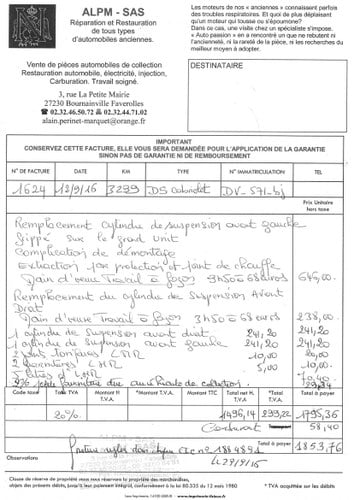 ALPM - SAS
Réparation et Restauration
de tous types
d'automobiles anciennes.
Vente de pièces automobiles de collection
Restauration automobile, électricité, injection,
Carburation. Travail soigné.
3, rue La Petite Mairie
27230 Bournainville Faverolles
☎ 02.32.46.50.72 02.32.44.71.02
alain.perinet-marquet@orange.fr
Les moteurs de nos « anciennes » connaissent parfois
des troubles respiratoires. Et quoi de plus déplaisant
qu'un moteur qui tousse ou s'époumone?
Dans ce cas, une visite chez un spécialiste s'impose.
« Auto passion » en a rencontré un que ne rebutent ni
l'ancienneté, ni la rareté de la pièce, ni les recherches du
meilleur moyen à adopter.
DESTINATAIRE
IMPORTANT
CONSERVEZ CETTE FACTURE, ELLE VOUS SERA DEMANDÉE POUR L'APPLICATION DE LA GARANTIE
SINON PAS DE GARANTIE NI DE REMBOURSEMENT
N° DE FACTURE DATE KM TYPE N° IMMATRICULATION TEL
1624 13/9/16 3299 DS Cabriolet DV-571-bj
Prix Unitaire
hors taxe
Remplacement cylindre de suspension avant gauche
Grippé sur le grand unit
Complication de démontage
Extraction par protection et joint de chauffe
Main d'œuvre Travail à façon 9h50 à 68 euros 646,00
Remplacement du cylindre de suspension Avant
Droit
Main d'œuvre Travail à façon 3h50 à 68 euros 238,00
1 cylindre de suspension avant droit 241,20 241,20
1 cylindre de suspension avant gauche 241,20 241,20
LHM 10,00 20,00
LHM 5,00 10,00
5 litres LHM
Code taxe Total TVA Montant H T.V.A. Montant TTC Total net H. T.V.A. *Total T.V.A. Total à payer
20% 1496,14 299,22 1795,36
58,40
Total à payer
1853,76
Observations
Facture réglée par chèque CIC n° 1884891
Le 29/9/16
Clause de réserve de propriété : nous nous réservons la propriété des marchandises,
objets des présents débits, jusqu'à leur paiement intégral, conformément à la loi 80.335 du 12 mars 1980
* TVA acquittée sur les débits